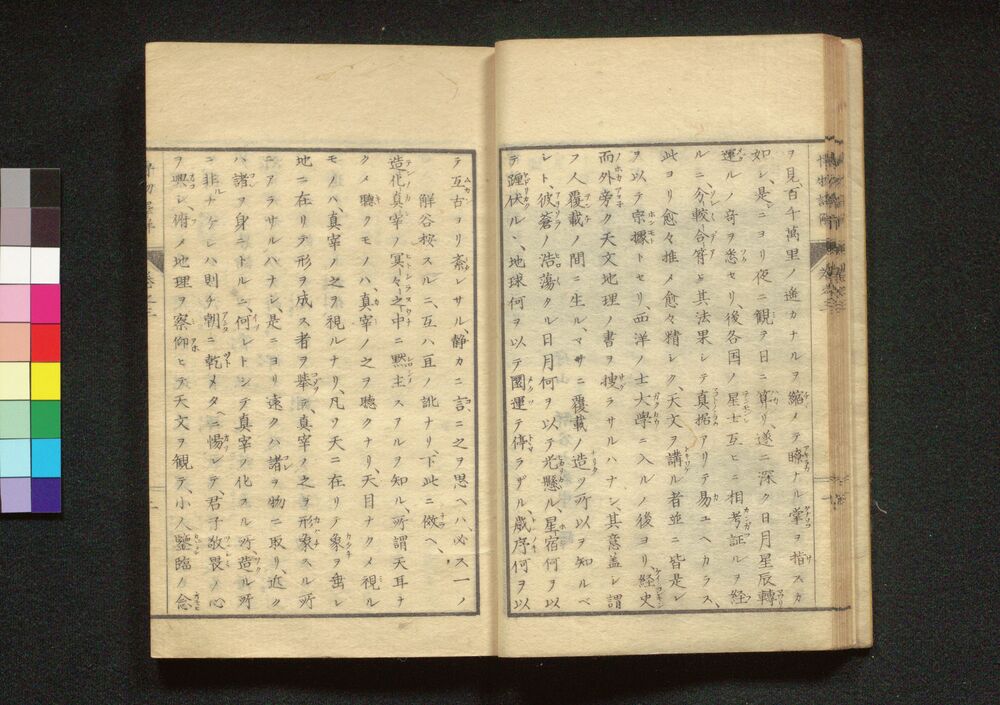 ヲ見、百千萬里ノ遙カナルヲ縮メテ瞭ナル掌ヲ指スカ
如シ、是ニヨリ夜ニ観ヲ日ニ算リ、遂ニ深ク日月星辰轉
運ルノ奇ヲ悉セリ、後各国ノ星士互ヒニ相考証ルヲ経
ルニ分り較合符ヒ其法果シテ真据アリテ易ユヘカラス、
此ヨリ愈々推メ愈々精シク、天文ヲ講ル者並ニ皆是レ
ヲ以テ宗據トセリ、西洋ノ士大學ニ入ルノ後ヨリ経史
而外旁ク天文地理ノ書ヲ捜ラサルハナシ、其意盖シ謂
フ人覆載ノ間ニ生ル、マサニ覆載ノ造ツ所以ヲ知ルベ
シト、彼蒼ノ浩蕩タル日月何ヲ以テ光懸ル、星宿何ヲ以
テ躔伏ル、地球何ヲ以テ圜運テ停ラザル、歳序何ヲ以
テ互古ヨリ紊レサル、静カニ言ニ之ヲ思ヘハ、必ス一ノ
解谷按スルニ、互ハ亘ノ訛ナリ、下此ニ倣ヘ、
造化真宰ノ冥々之中ニ黙主スアルヲ知ル、所謂天耳ナ
クメ聴クモノハ、真宰ノ之ヲ聴クナリ、天目ナクメ視ル
モノハ、真宰ノ之ヲ視ルナリ、凡ソ天ニ在リテ象ヲ垂レ
地ニ在リテ形ヲ成ス者ヲ挙テ、真宰ノ之ヲ形象スル所
ニアラサルハナシ、是ニヨリ遠クハ諸ヲ物ニ取リ、近ク
ハ諸ヲ身ニトルニ、何レトシテ真宰ノ化スル所、造ル所
ニ非ルナケレハ則チ朝ニ乾メタヘニ惕レテ、君子敬畏ノ心
ヲ興シ、俯メ地理ヲ察仰ヒテ天文ヲ観テ、小人鑒臨ノ念